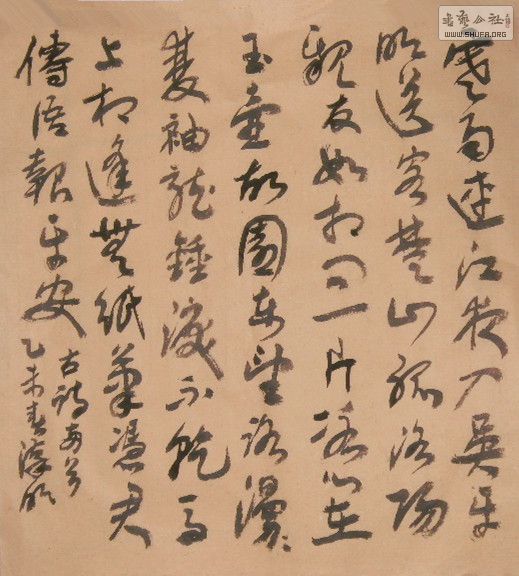 書艺公社
WWW.SHUFA.ORG
寒雨连江夜入吴平
明送客楚山孤洛陽
親友如相问一片冰心在
玉壺故園东望路漫〻
雙袖龍鍾淚不乾马
上相逢無紙筆憑君
傳语報平安
古詩两首
乙未春